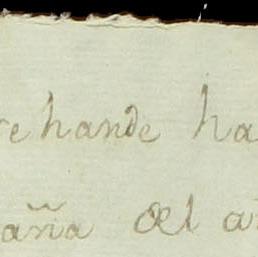 re hande ha
aña del a